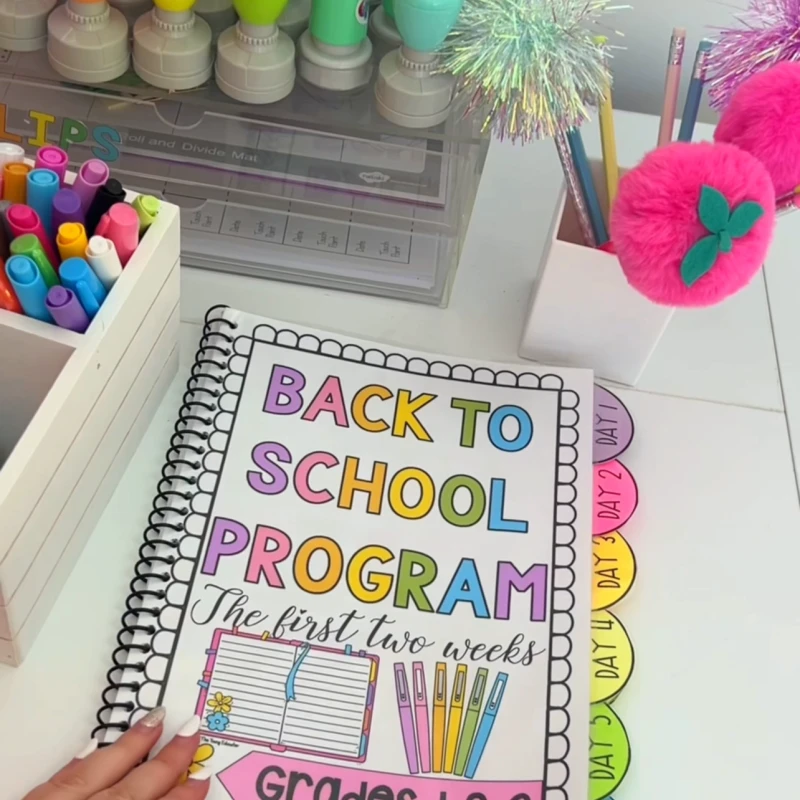 LIPS
Roll and Divide Mat
BACK TO
SCHOOL
PROGRAM
The first two weeks
Grades
DAY 1
DAY 2
DAY 3
DAY 4
DAY 5